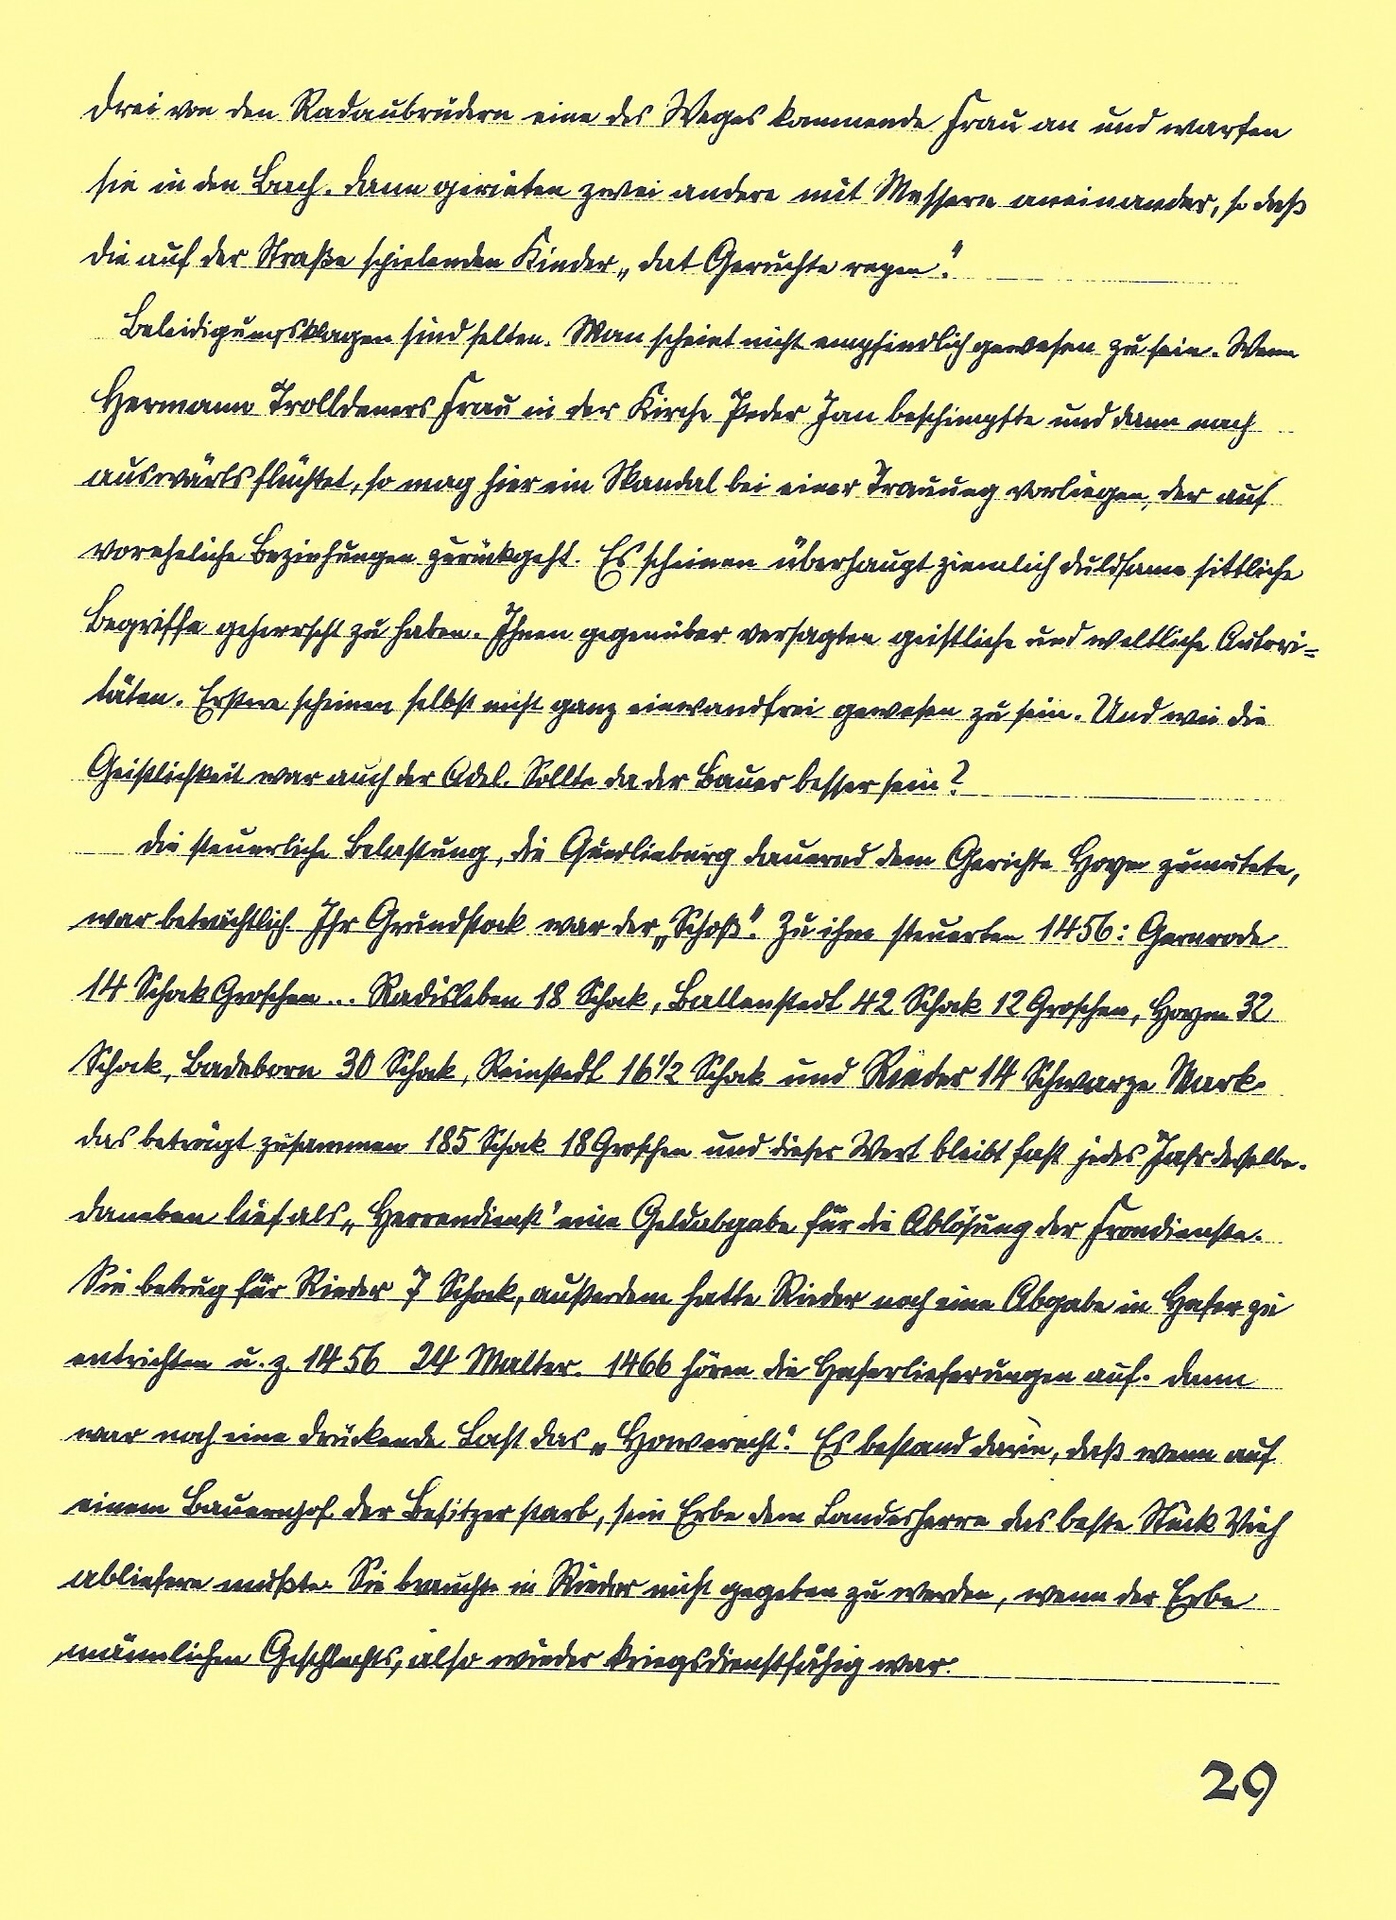 drei von den Radaubrüdern eine des Weges kommende Frau an und warfen
sie in den Bach. Dann gerieten zwei andere mit Messern aneinander, so daß
die auf der Straße spielenden Kinder „dat Geruchte repen“.
Beleidigungsklagen sind selten. Man scheint nicht empfindlich gewesen zu sein. Wenn
Hermann Trolldeners Frau in der Kirche Peder Jan beschimpfte und dann nach
auswärts flüchtet, so mag hier ein Skandal bei einer Trauung vorliegen, der auf
voreheliche Beziehungen zurückgeht. Es scheinen überhaupt ziemlich duldsame sittliche
Begriffe geherrscht zu haben. Ihnen gegenüber versagten geistliche und weltliche Autori=
täten. Erstere scheinen selbst nicht ganz einwandfrei gewesen zu sein. Und wie die
Geistlichkeit war auch der Adel. Sollte da der Bauer besser sein?
Die steuerliche Belastung, die Quedlinburg dauernd dem Gerichte Hoym zumutete,
war beträchtlich. Ihr Grundstock war der „Schoß“. Zu ihm steuerten 1456: Gernrode
14 Schock Groschen... Radisleben 18 Schock, Ballenstedt 42 Schock 12 Groschen, Hoym 32
Schock, Badeborn 30 Schock, Reinstedt 16 1/2 Schock und Rieder 14 Schwarze Mark.
Das beträgt zusammen 185 Schock 18 Groschen und dieser Wert bleibt fast jedes Jahr derselbe.
Daneben lief als „Herrendienst“ eine Geldabgabe für die Ablösung der Frondienste.
Sie betrug für Rieder 7 Schock, außerdem hatte Rieder noch eine Abgabe in Hafer zu
entrichten u. z. 1456 24 Malter. 1466 hören die Haferlieferungen auf. Dann
war noch eine drückende Last das „Howerecht“. Es bestand darin, daß wenn auf
einem Bauernhof der Besitzer starb, sein Erbe dem Landesherrn das beste Stück Vieh
abliefern mußte. Sie brauchte in Rieder nicht gegeben zu werden, wenn der Erbe
männlichen Geschlechts, also wieder kriegsdienstfähig war.
29